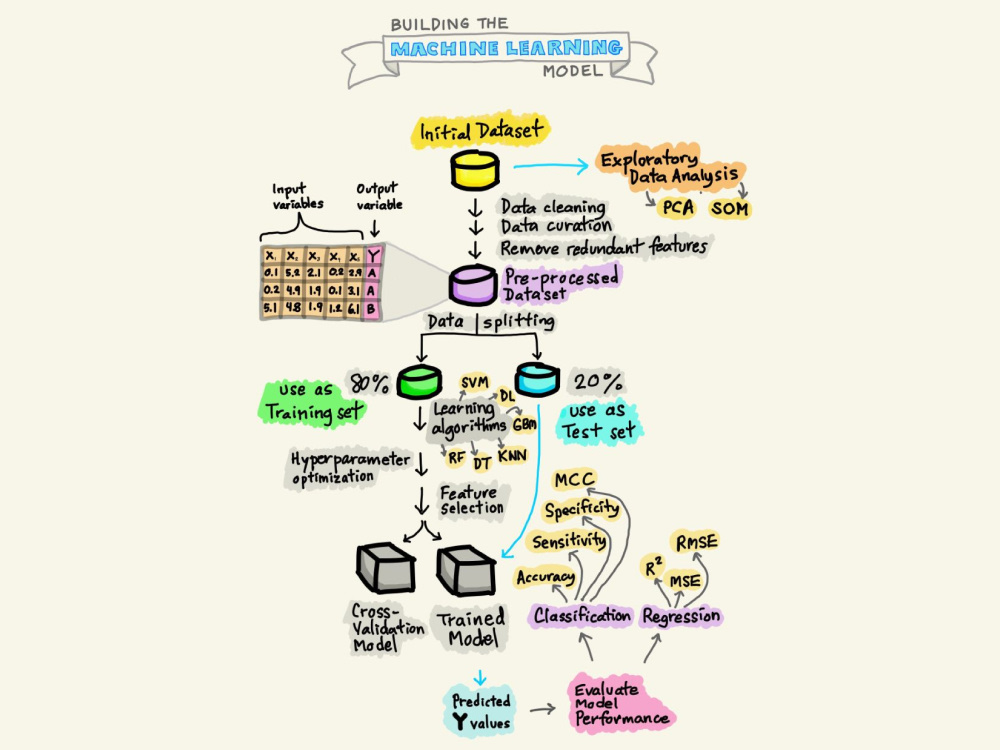 BUILDING THE
MACHINE LEARNING
MODEL
Initial Dataset
Exploratory
Data Analysis
PCA SOM
Data cleaning
Data curation
Remove redundant features
Input
variables
Output
variable
X₁ X₂ X₃ X₄ X₅ Y
0.1 5.2 2.1 0.2 2.9 A
0.2 4.9 1.9 0.1 3.1 A
5.1 4.8 1.9 1.2 6.1 B
Pre-processed
Dataset
Data splitting
80%
use as
Training set
20%
use as
Test set
Learning
algorithms
SVM
DL
GBM
KNN
DT
RF
Hyperparameter
optimization
Feature
selection
Cross-
Validation
Model
Trained
Model
Predicted
Y values
Evaluate
Model
Performance
Classification
Accuracy
Sensitivity
Specificity
MCC
Regression
R²
MSE
RMSE